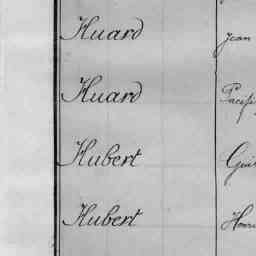 Huard Jean
Huard Pacifi
Hubert Gui
Hubert Honr